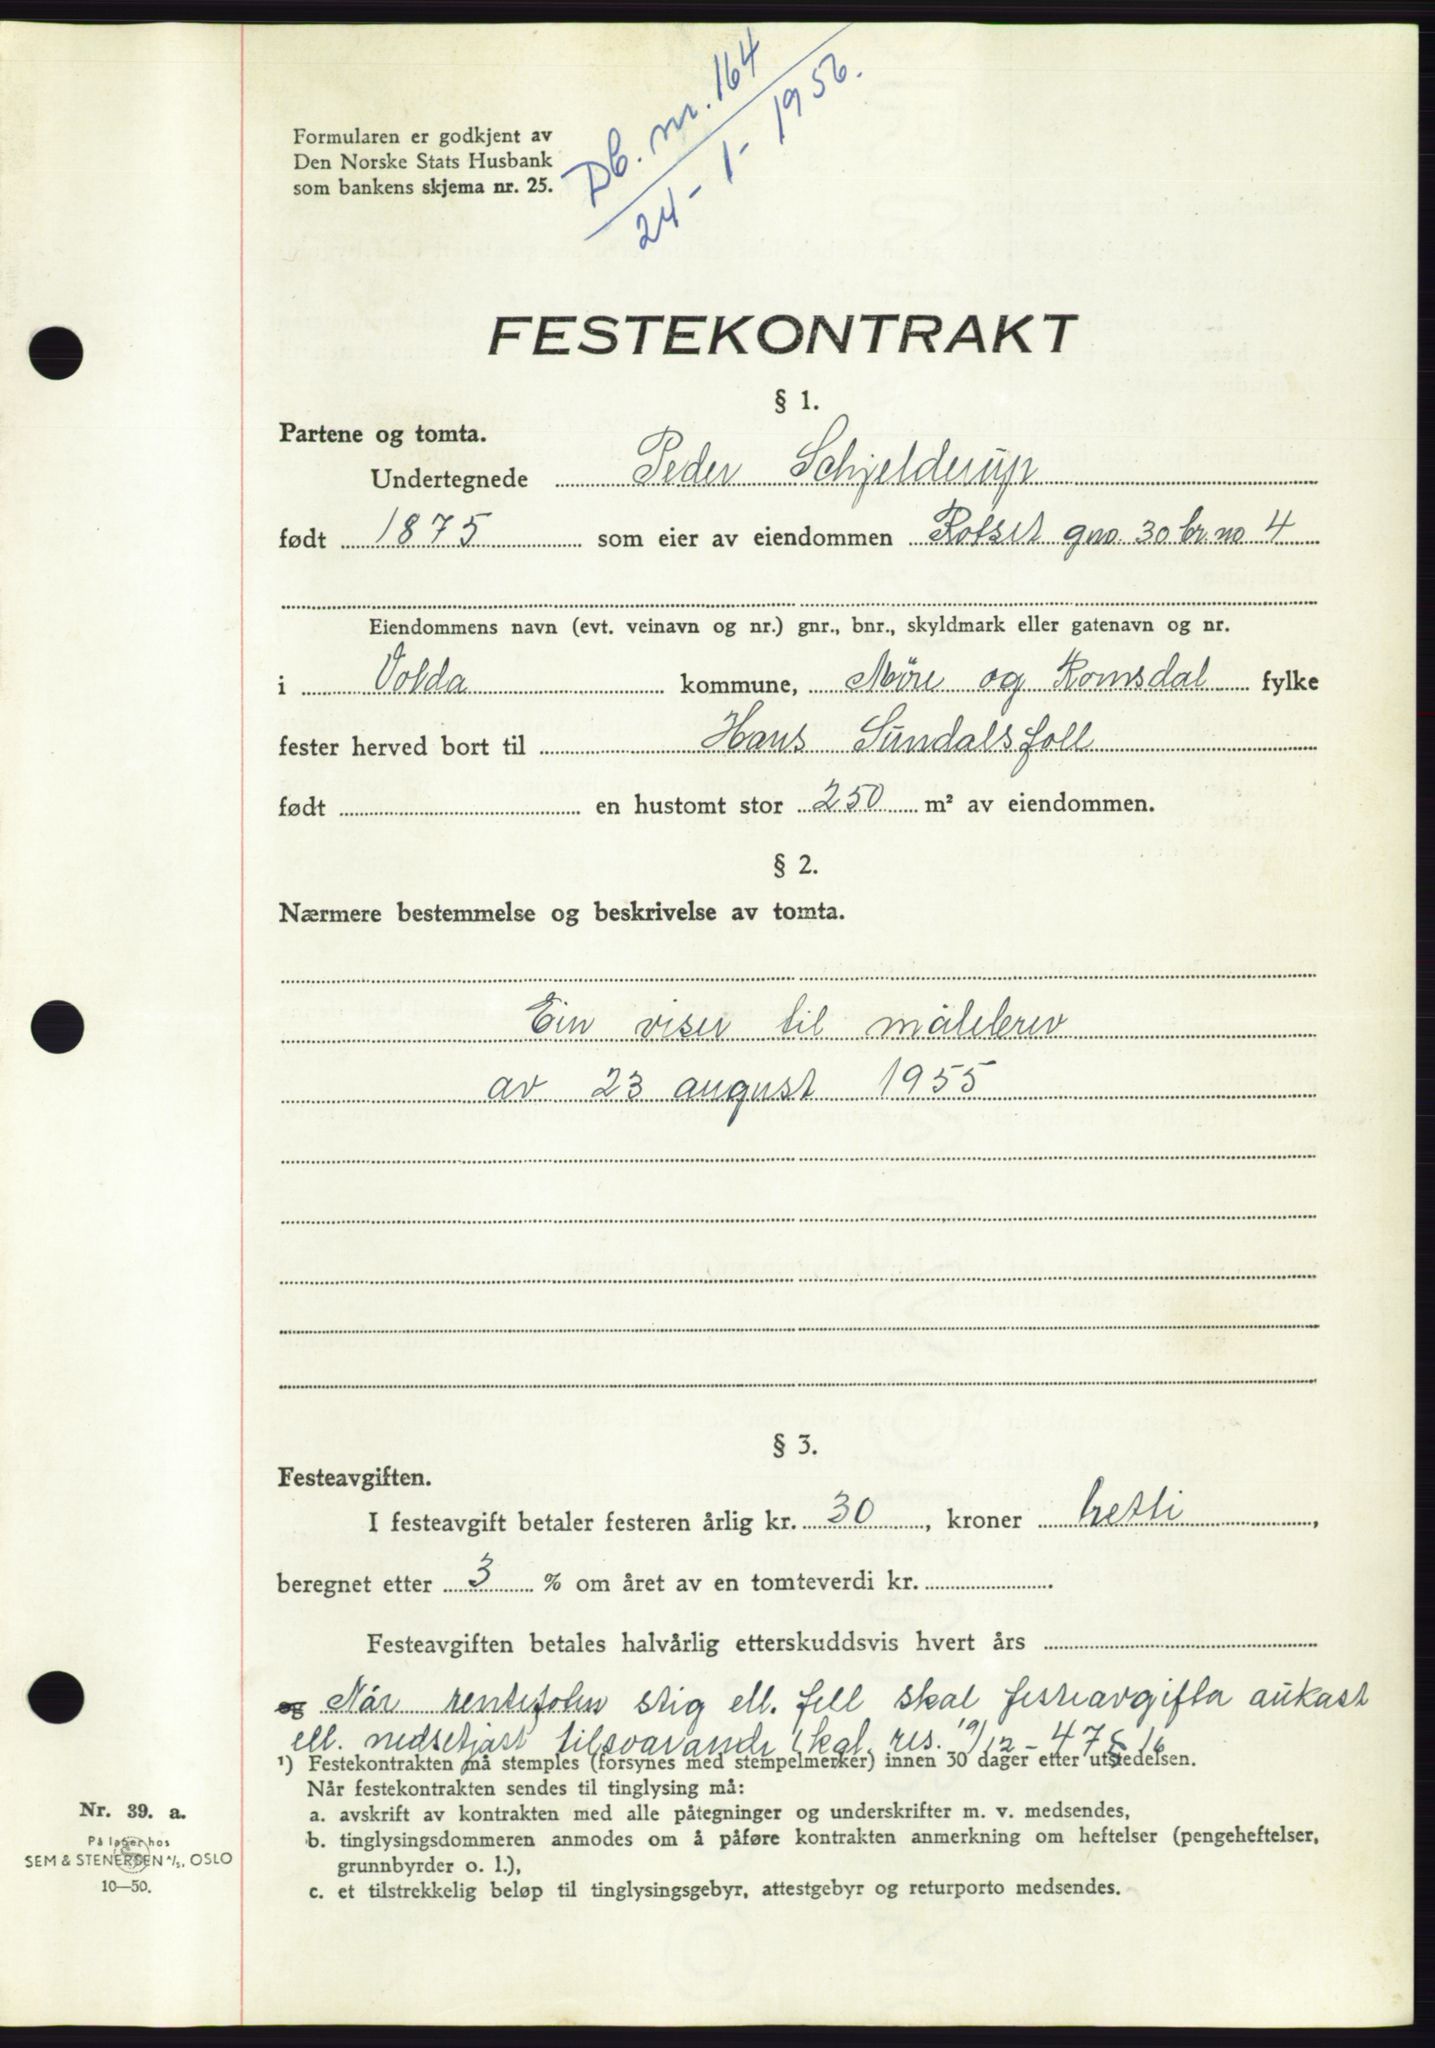 Db. nr. 164
24 - 1 - 1956.
Formularen er godkjent av
Den Norske Stats Husbank
som bankens skjema nr. 25.
FESTEKONTRAKT
§ 1.
Partene og tomta.
Undertegnede Peder Schjelderup
født 1875 som eier av eiendommen Rotset gno. 30 br. no 4
Eiendommens navn (evt. veinavn og nr.) gnr., bnr., skyldmark eller gatenavn og nr.
i Volda kommune, Møre og Romsdal fylke
fester herved bort til Hans Sundalsfoll
født en hustomt stor 250 m² av eiendommen.
§ 2.
Nærmere bestemmelse og beskrivelse av tomta.
Ein viser til målebrev
av 23 august 1955
§ 3.
Festeavgiften.
I festeavgift betaler festeren årlig kr. 30, kroner tretti,
beregnet etter 3 % om året av en tomteverdi kr.
Festeavgiften betales halvårlig etterskuddsvis hvert års
og Når rentefoten stig ell. fell skal festeavgifta aukast
ell. nedsetjast tilsvarande kgl. res. 19/12 - 47 § 16
¹) Festekontrakten må stemples (forsynes med stempelmerker) innen 30 dager etter utstedelsen.
Når festekontrakten sendes til tinglysing må:
a. avskrift av kontrakten med alle påtegninger og underskrifter m. v. medsendes,
b. tinglysingsdommeren anmodes om å påføre kontrakten anmerkning om heftelser (pengeheftelser,
grunnbyrder o. l.),
c. et tilstrekkelig beløp til tinglysingsgebyr, attestgebyr og returporto medsendes.
Nr. 39. a.
På lager hos
SEM & STENERSEN A/S, OSLO
10—50.